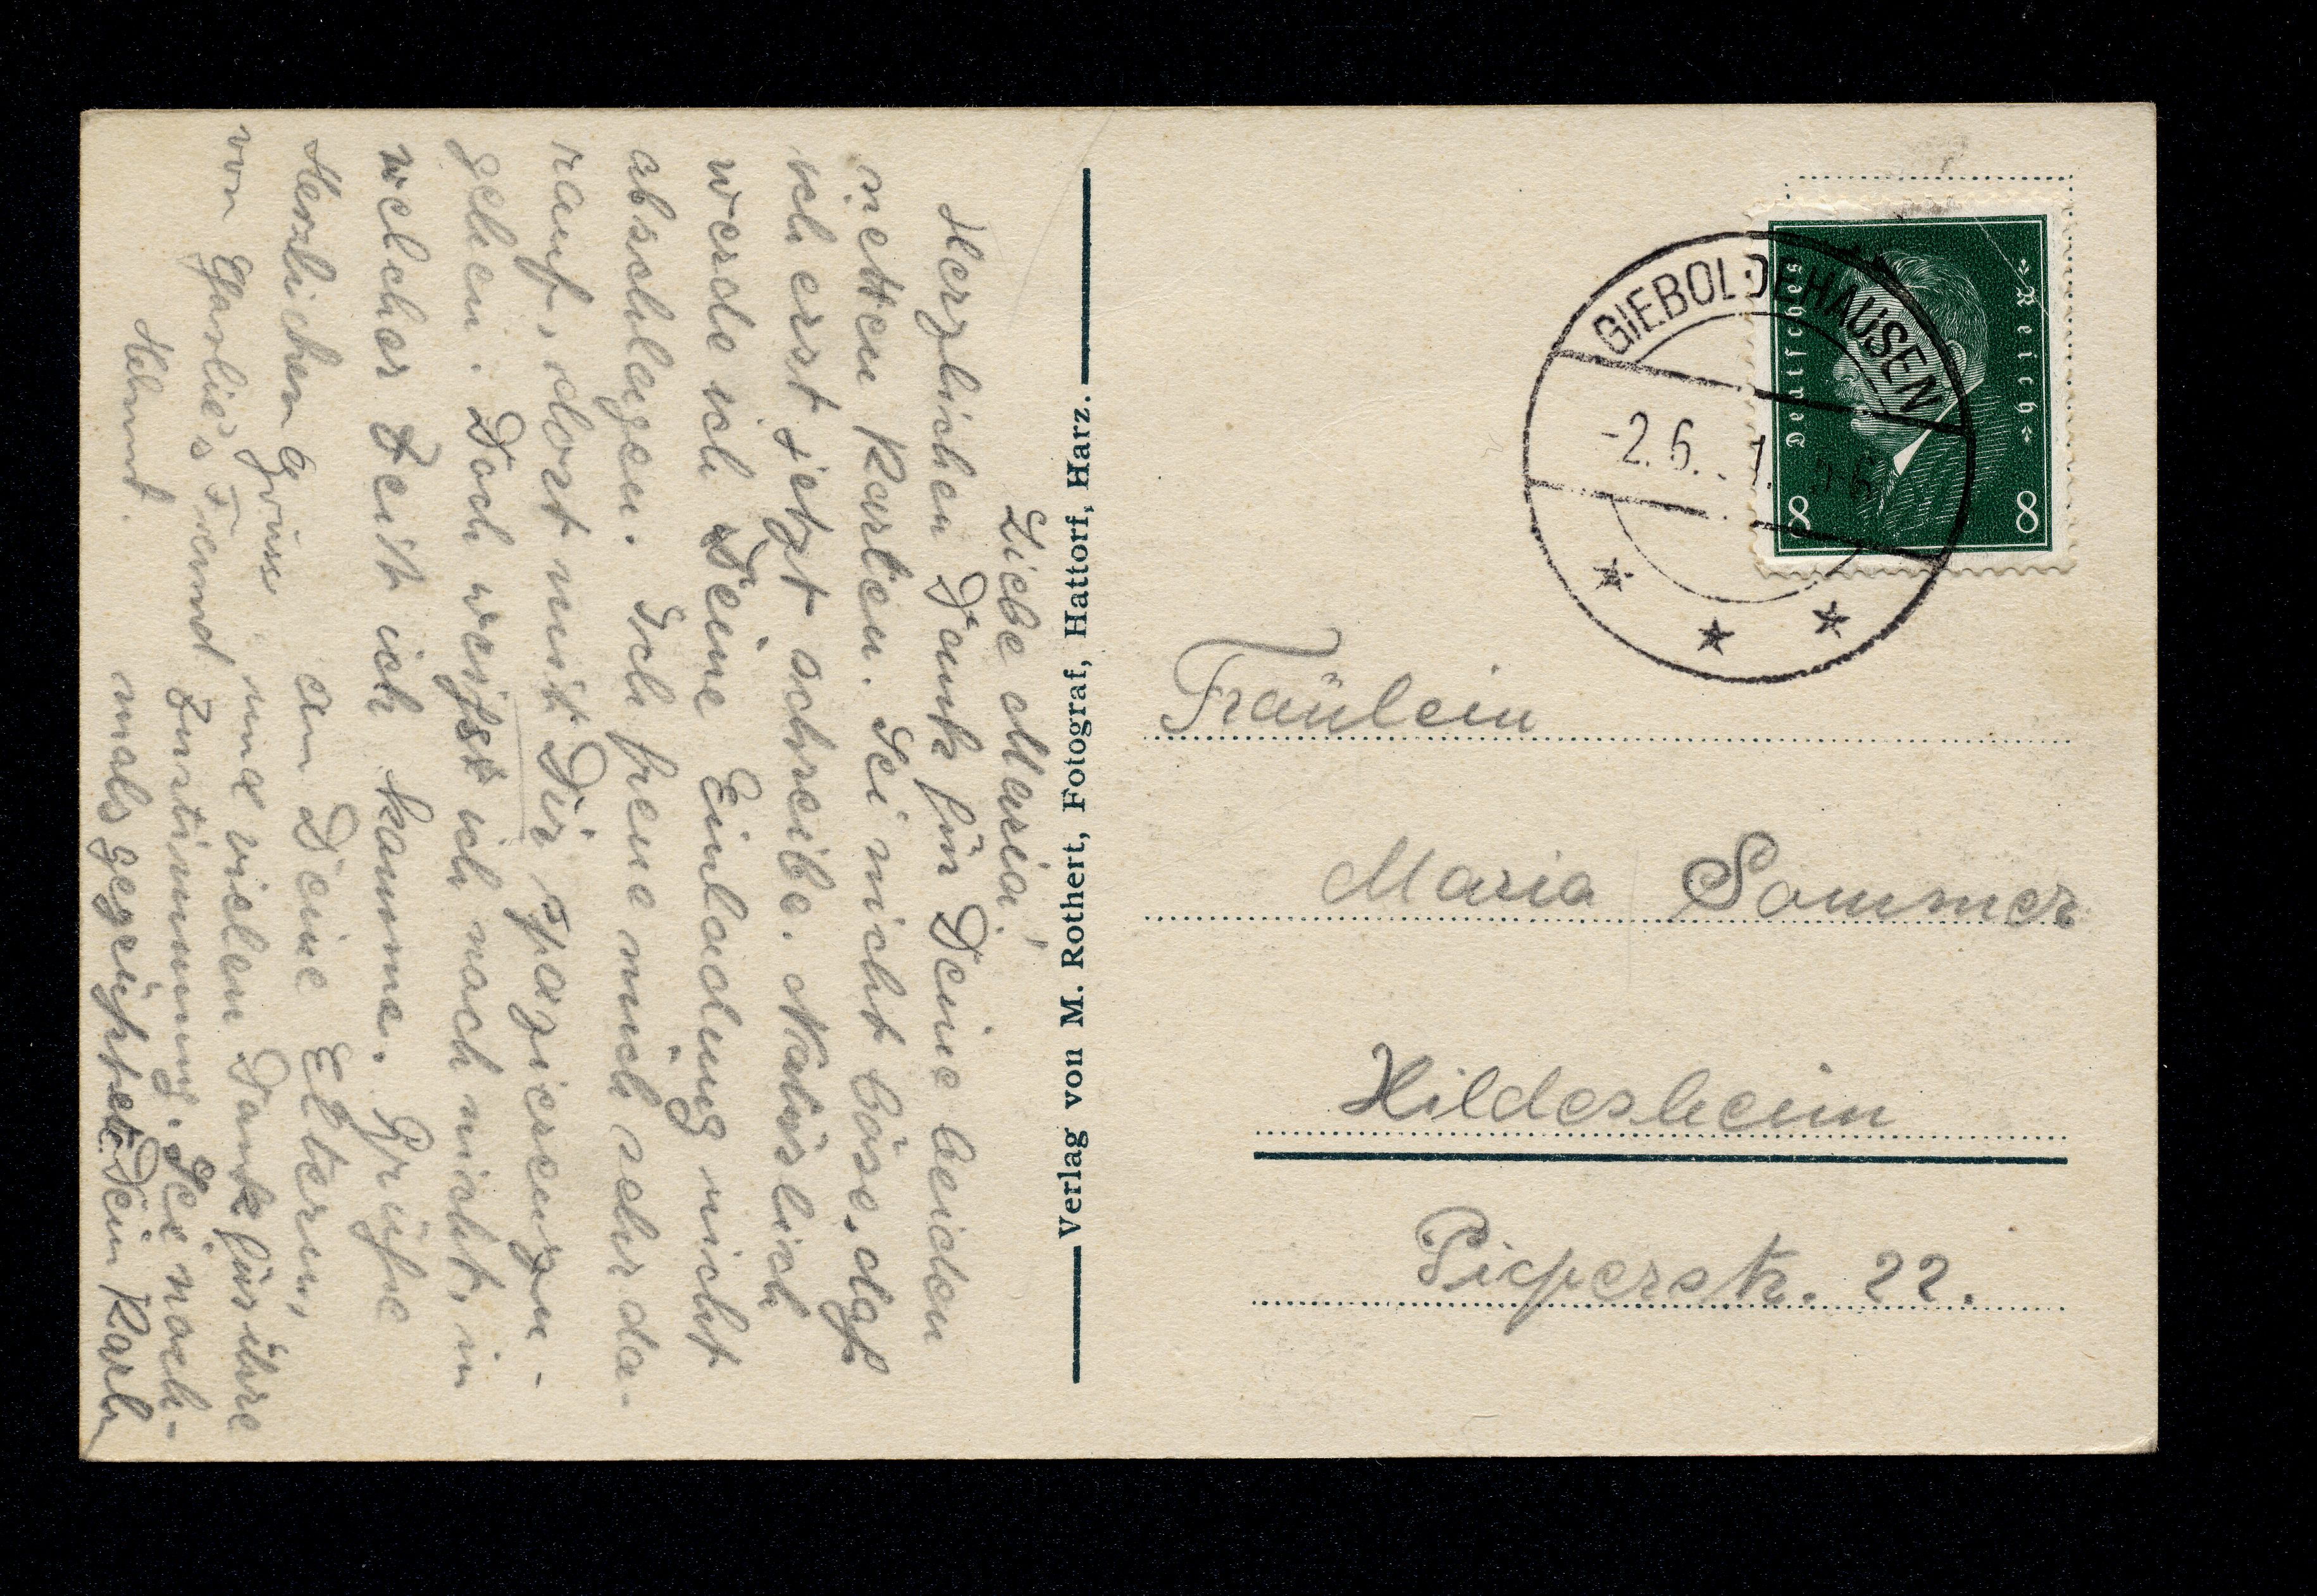 Liebe Maria!
Herzlichen Dank für Deine beiden
netten Karten. Sei nicht böse, daß
ich erst jetzt schreibe. Natürlich
werde ich Deine Einladung nicht
abschlagen. Ich freue mich sehr da-
rauf, dort mit Dir spazierenzu-
gehen. Doch weiß ich noch nicht, in
welcher Zeit ich komme. Grüße
an Deine Eltern,
und vielen Dank für ihre
Zustimmung. Sei noch-
mals gegrüßt Dein Karl
Herzlichen Gruss
von Freund
Helmut.
Verlag von M. Rothert, Fotograf, Hattorf, Harz.
Deutsches Reich
8 8
GIEBOLDEHAUSEN
-2.6. 5-6
Fräulein
Maria Sommer
Hildesheim
Pieperstr. 22.